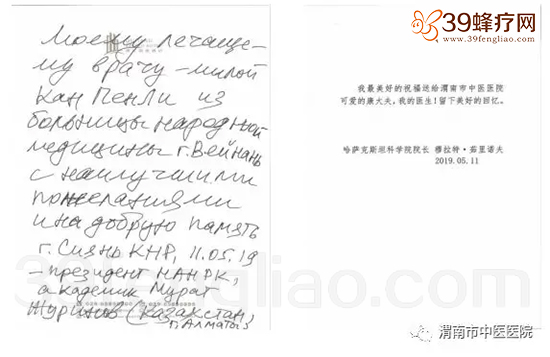 39蜂疗网
www.39fengliao.com
Моему лечаще-
му врачу - милой
Кан Пенли из
больницы народной
медицины г. Вейнань
с наилучшими
пожеланиями
и на добрую память
г. Сиянь КНР, 11.05.19
- президент НАН РК,
академик Мурат
Журинов (Казахстан,
г. Алматы)
我最美好的祝福送给渭南市中医医院
可爱的康大夫，我的医生！留下美好的回忆。
哈萨克斯坦科学院院长 穆拉特·茹里诺夫
2019.05.11
39fengliao.com
渭南市中医医院